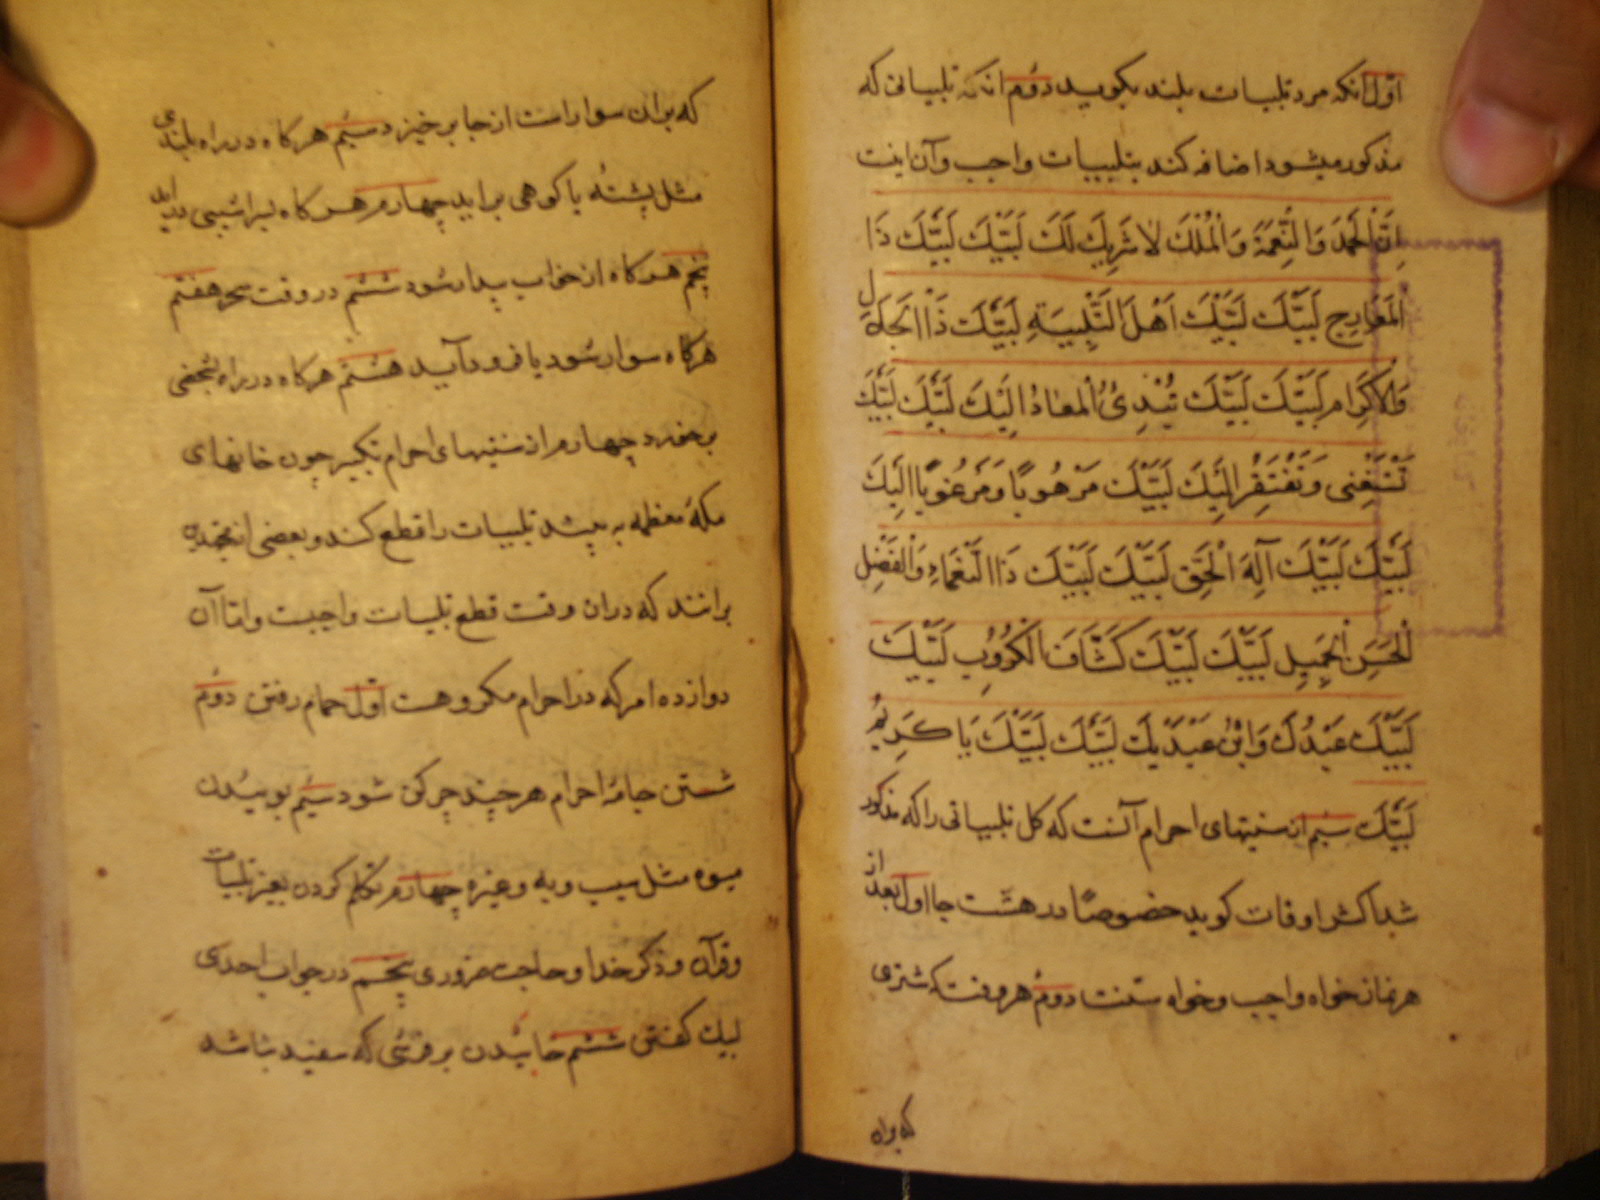 اوّل انکه مرد تلبیات بلند بکوید دوّم انکه تلبیاتی که
مذکور میشود اضافه کند بتلبیات واجب وآن اینت
اِنَّ الْحَمْدَ وَالنِّعْمَةَ وَالْمُلْكَ لاٰشَرِيكَ لَكَ لَبَّيْكَ لَبَّيْكَ ذَا
الْمَعٰارِجِ لَبَّيْكَ لَبَّيْكَ اَهْلَ التَّلْبِيَةِ لَبَّيْكَ ذَاالْجَلاٰلِ
وَالاْكْرٰامِ لَبَّيْكَ لَبَّيْكَ تُبْدِئُ وَالْمَعٰادُ اِلَيْكَ لَبَّيْكَ لَبَّيْكَ
تَسْتَغْنى وَنَفْتَقِرُ اِلَيْكَ لَبَّيْكَ مَرْهُوبًا وَمَرْغُوبًا اِلَيْكَ
لَبَّيْكَ لَبَّيْكَ اِلٰهَ الْحَقِّ لَبَّيْكَ لَبَّيْكَ ذَا النَّعْمَاءِ وَالْفَضْلِ
الْحَسَنِ الْجَمِيلِ لَبَّيْكَ لَبَّيْكَ كَشّٰافَ الْكُرُوبِ لَبَّيْكَ
لَبَّيْكَ عَبْدُكَ وَابْنُ عَبْدَيْكَ لَبَّيْكَ لَبَّيْكَ يَا كَرِيمُ
لَبَّيْكَ سیّم از سنیتهای احرام آنست که کل تلبیاتی را که مذکور
شد اکثر اوقات کوید خصوصًا در هشت جا اول بعد از
هر نماز خواه واجب وخواه سنت دوّم هر وقت که شتری
که بران
که بران سوار است از جا بر خیزد سیّم هر کاه در راه بلندی
مثل پشته یا کوهی بر اید چهارم هر کاه بسراشیبی در اید
پنجم هر کاه از خواب بیدار شود ششم در وقت سحر هفتم
هر کاه سوار شود یا فرود آید هشتم هر کاه در راه بشخصی
بر خورد چهارم از سنیتهای احرام تکبیر چون خانهای
مکهٔ معظمه به بیند تلبیات را قطع کند و بعضی از مجتهدین
برانند که دران وقت قطع تلبیات واجبت واما آن
دوازده امر که در احرام مکروهست اوّل حمام رفتن دوّم
شستن جامهٔ احرام هر چند چرکن شود سیّم بوییدن
میوه مثل سیب و به و غیره چهارم تکلم کردن بغیر تلبیات
وقرآن وذکر خدا و حاجت ضروری پنجم در جواب احدی
لبیك کفتن ششم خابیدن بر فرشی که سفید نباشد